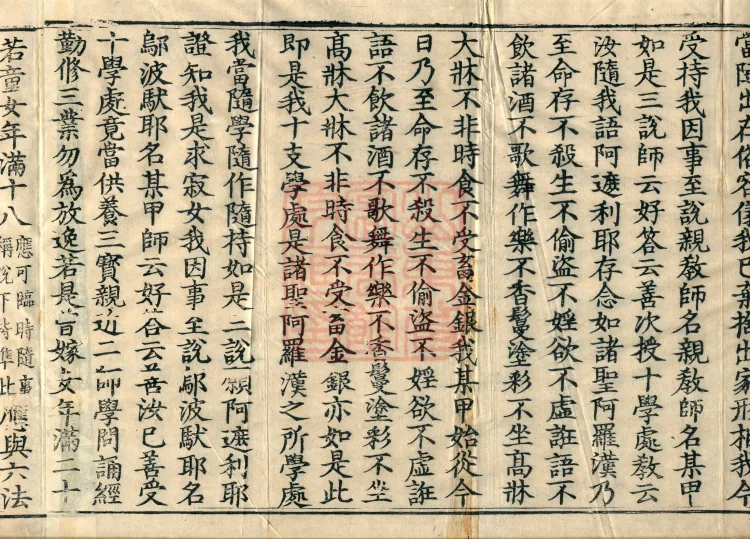 受持我因事至說親教師名親教師名某甲
如是三說師云好答云善次授十學處教云
汝隨我語阿遮利耶存念如諸聖阿羅漢乃
至命存不殺生不偷盜不婬欲不虛誑語不
飲諸酒不歌舞作樂不香鬘塗彩不坐高牀
大牀不非時食不受畜金銀我某甲始從今
日乃至命存不殺生不偷盜不婬欲不虛誑
語不飲諸酒不歌舞作樂不香鬘塗彩不坐
高牀大牀不非時食不受畜金銀亦如是此
即是我十支學處是諸聖阿羅漢之所學處
我當隨學隨作隨持如是三說願阿遮利耶
證知我是求寂女我因事至說鄔波馱耶名
鄔波馱耶名某甲師云好答云善汝已善受
十學處竟當供養三寶親近二師學問誦經
勤修三業勿爲放逸若是曾嫁女年滿二十
若童女年滿十八應可臨時隨事稱說下皆準此應與六法